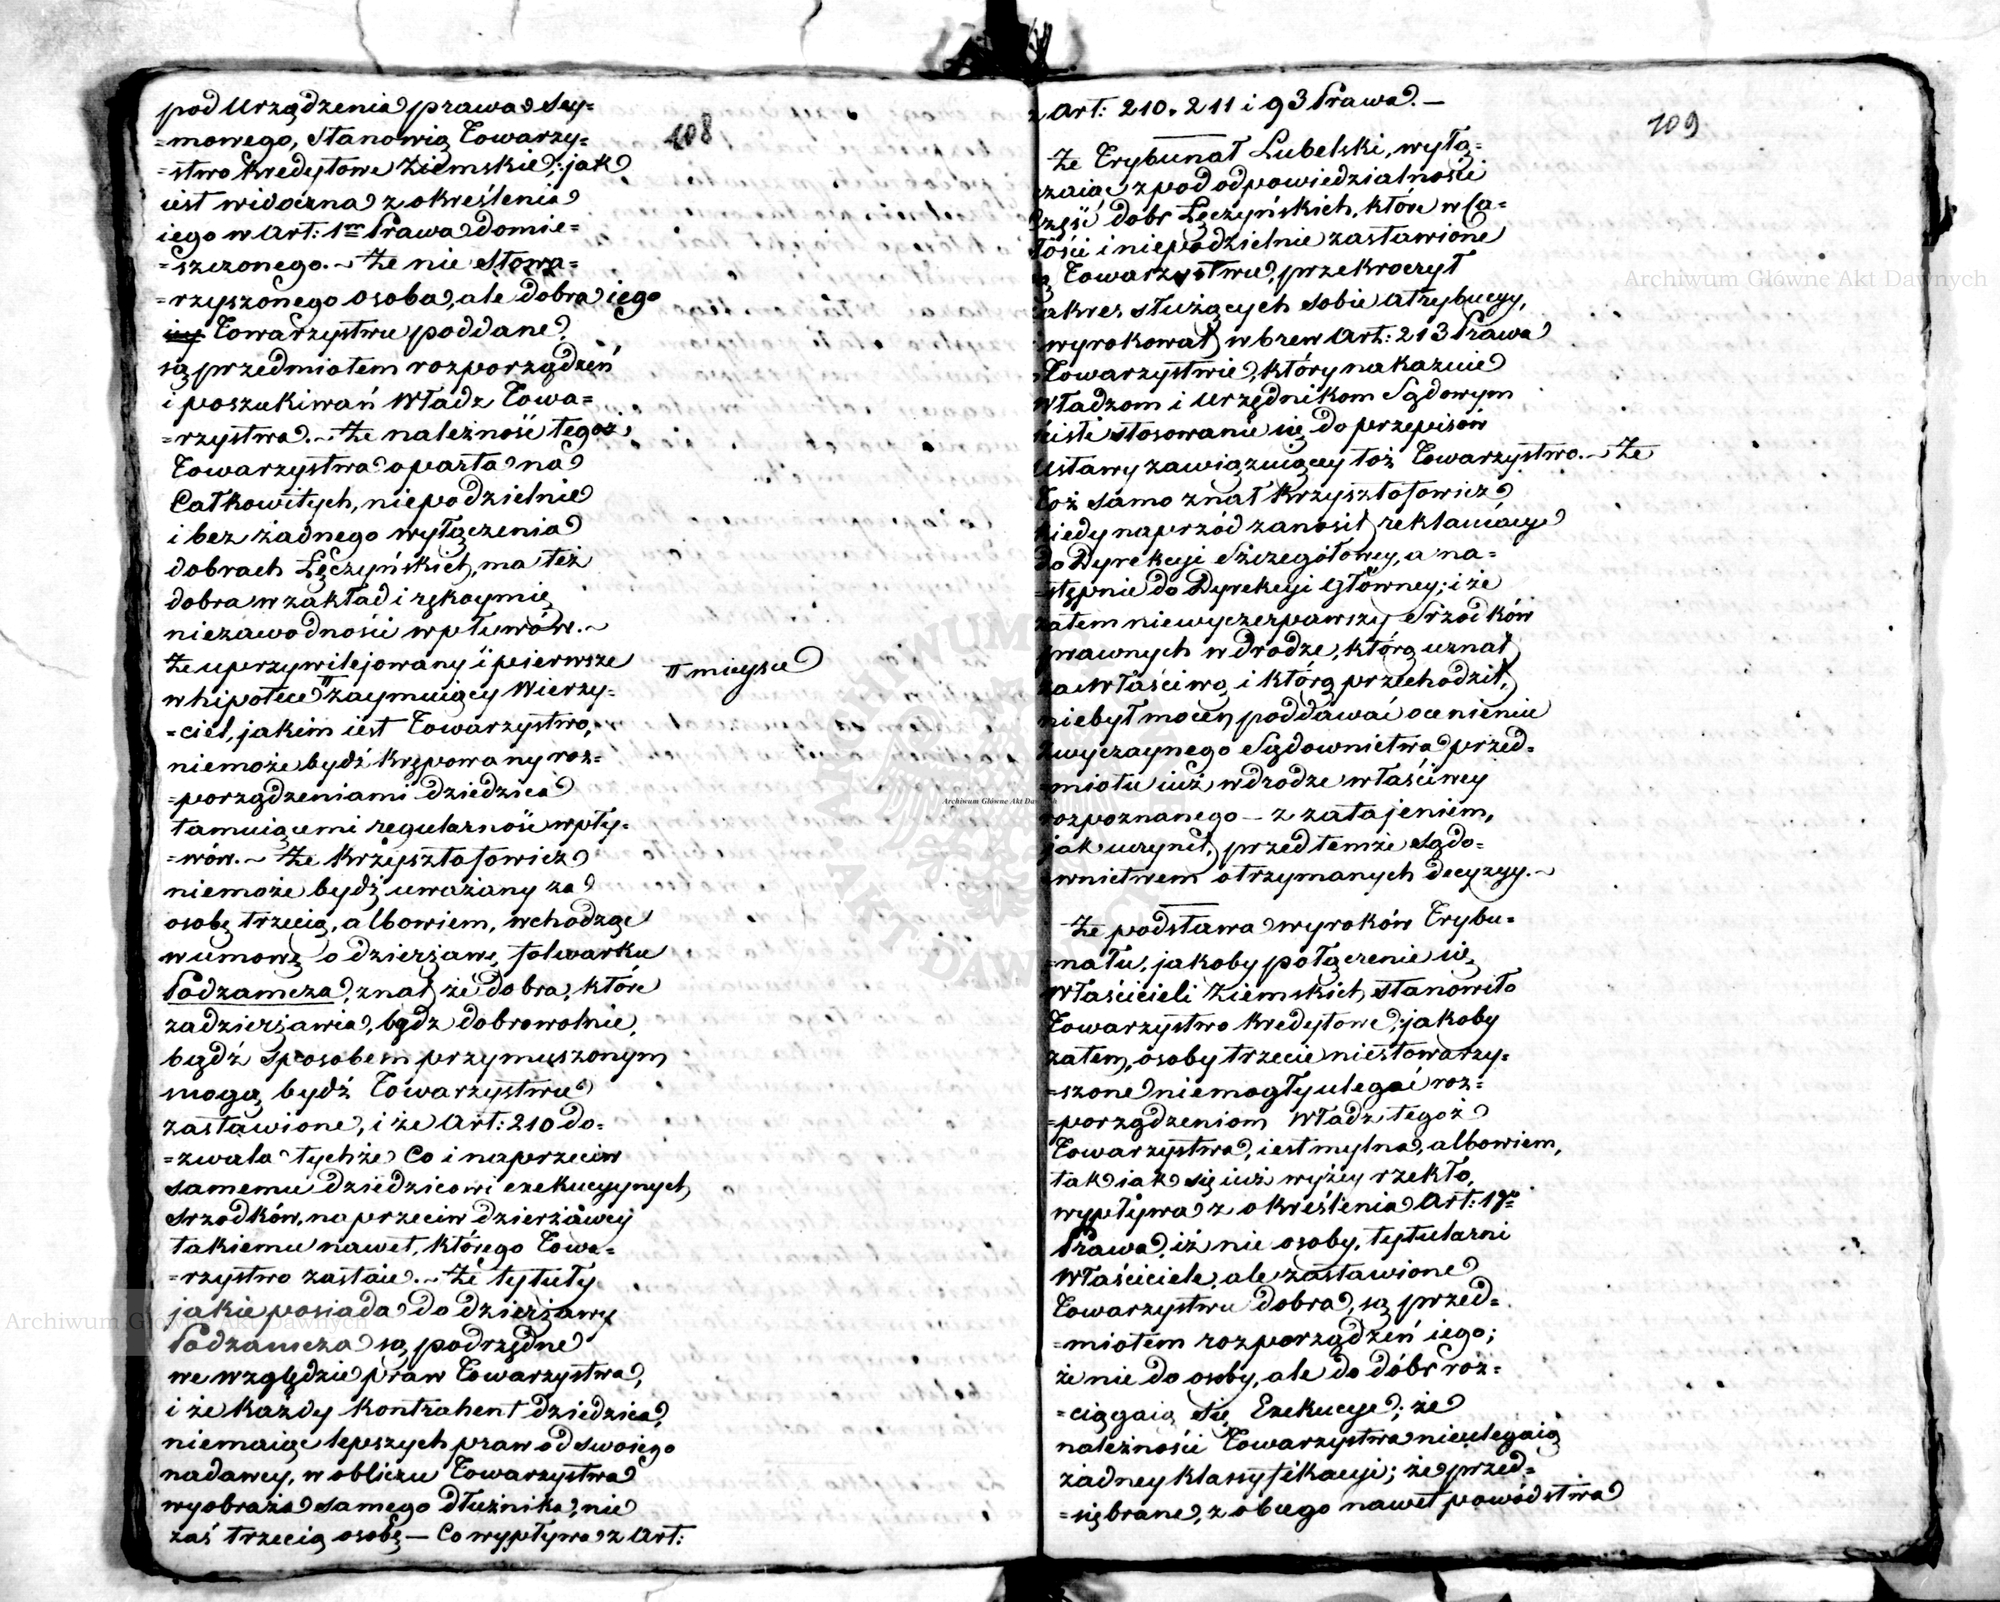 108
pod Urządzenia prawa Sey=
=mowego, Stanowią Towarzy=
=stwo Kredytowe Ziemskie; jak
iest widoczna z określenia
iego w Art: 1m Prawa domie=
=szczonego. ~ Że nie Stowa=
=rzyszonego osoba, ale dobra iego
Towarzystwu poddane,
są przedmiotem rozporządzeń
i poszukiwań Władz Towa=
=rzystwa. ~ Że należność tegoż
Towarzystwa oparta na
Całkowitych, niepodzielnie
i bez żadnego wyłączenia
dobrach Łęczyńskich, ma też
dobra w zakład i rękoymię
niezawodności wpływów. ~
Że uprzywilejowany i pierwsze
w hipotece π zaymuiący Wierzy=
π mieysce
=ciel, jakim iest Towarzystwo,
niemoże bydź krępowany roz=
=porządzeniami dziedzica
tamuiącemi regularność wpły=
=wów. ~ Że Krzysztofowicz
niemoże bydź uważany za
osobę trzecią, albowiem, wchodząc
w umowę o dzierżawę folwarku
Podzamcza, znał że dobra, które
zadzierżawia, bądz dobrowolnie,
bądź sposobem przymuszonym
mogą bydź Towarzystwu
zastawione, i że Art: 210 do=
=zwala tychże Co i naprzeciw
samemu dziedzicowi exekucyynych
srzodków, naprzeciw dzierżawcy
takiemu nawet, którego Towa=
=rzystwo zastaie. ~ Że tytuły
jakie posiada do dzierżawy
Podzamcza są podrzędne
we względzie praw Towarzystwa,
i że każdy Kontrahent dziedzica,
niemaiąc lepszych praw od swoiego
nadawcy, w obliczu Towarzystwa
wyobraża samego dłużnika, nie
zaś trzecią osobę — Co wypływa z Art:
109
z Art: 210. 211 i 93 Prawa. —
Że Trybunał Lubelski, wyłą=
czaiąc z pod odpowiedzialności
Część dobr Łęczyńskich, które w Ca=
łości i niepodzielnie zastawione
są Towarzystwu, przekroczył
zakres służących sobie atrybucyy,
i wyrokował wbrew Art: 213 Prawa
o Towarzystwie, który nakazuie
Władzom i Urzędnikom Sądowym
ściśle stosowanie się do przepisów
Ustawy zawiązuiącey toż Towarzystwo. ~ Że
toż samo znał Krzysztofowicz
kiedy naprzód zanosił reklamacye
do Dyrekcyi Szczegółowey, a na=
=stępnie do Dyrekcyi Główney; i że
zatem niewyczerpawszy Srzodków
prawnych w drodze, którą uznał
za właściwą i którą przechodził,
niebył mocen poddawać ocenieniu
zwyczaynego Sądownictwa przed=
=miotu iuż w drodze właściwey
rozpoznanego — z zatajeniem,
jak uczynił, przed temże Sądo=
=wnictwem otrzymanych decyzyy. ~
Że podstawa wyroków Trybu=
=nału, jakoby połączenie się
Właścicieli Ziemskich stanowiło
Towarzystwo Kredytowe, jakoby
zatem, osoby trzecie niestowarzy=
=szone niemogły ulegać roz=
=porządzeniom Władz tegoż
Towarzystwa, iest mylna, albowiem,
tak iak się iuż wyżey rzekło,
wypływa z określenia Art: 1go
Prawa, iż nie osoby, tytularni
Właściciele, ale zastawione
Towarzystwu dobra, są przed=
=miotem rozporządzeń iego;
że nie do osoby, ale do dóbr roz=
=ciągaią się Exekucye; że
należności Towarzystwa nieulegaią
żadney klassyfikacyi; że przed=
=siębrane, z obcego nawet powództwa